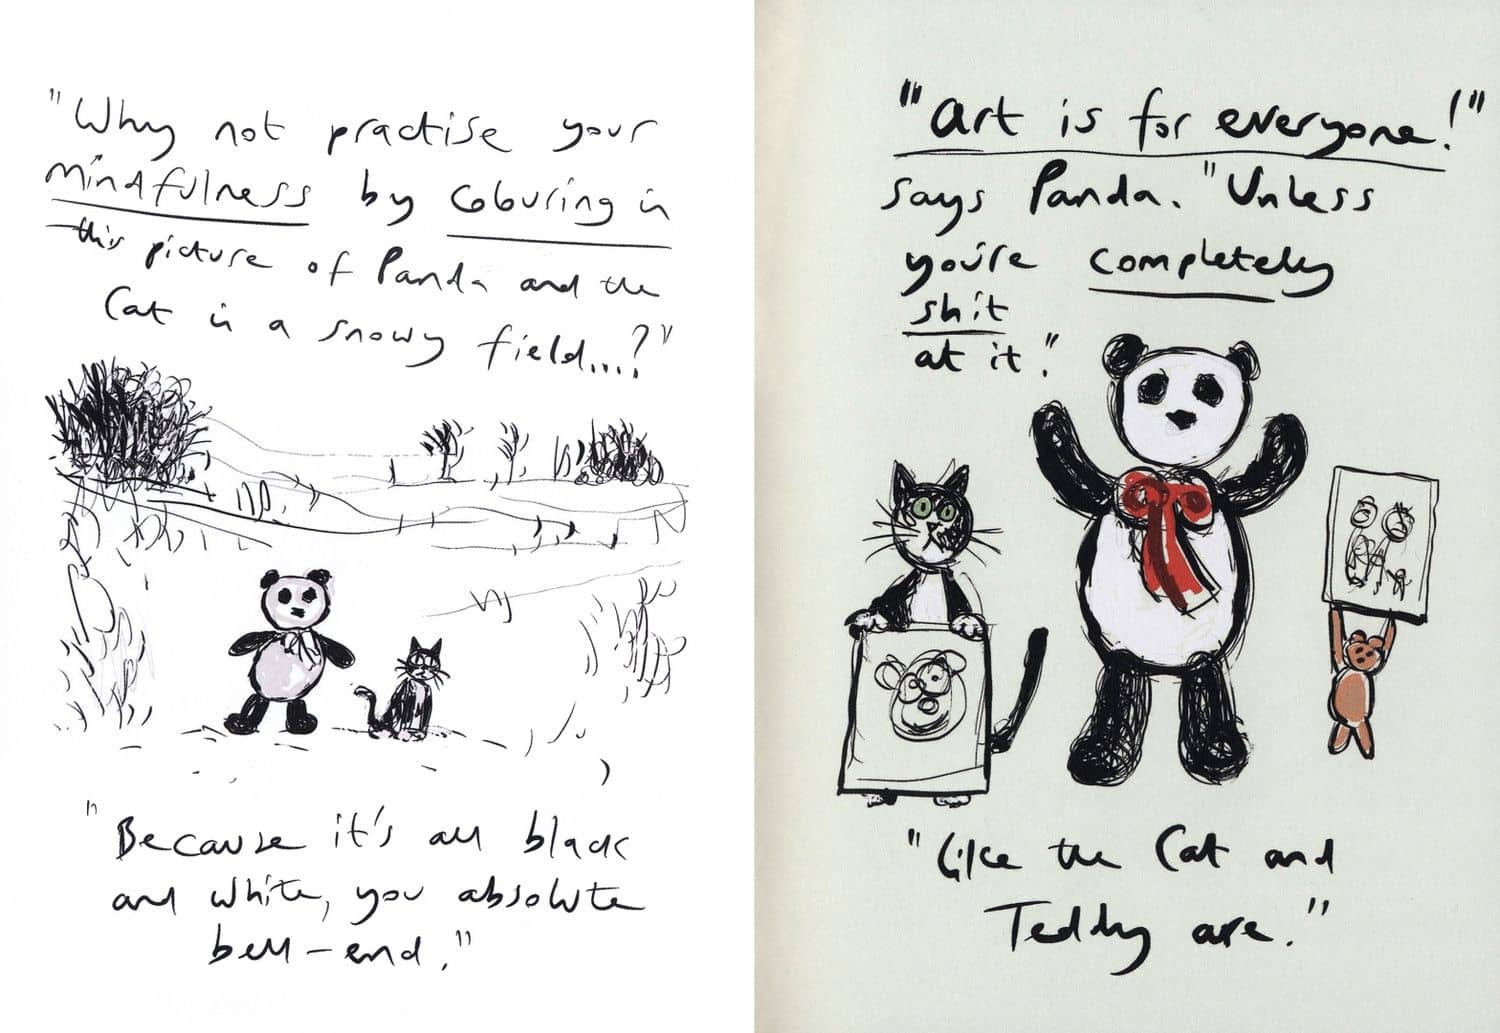 "Why not practise your
mindfulness by colouring in
this picture of Panda and the
Cat in a snowy field...?"
"Because it's all black
and white, you absolute
bell-end."
"Art is for everyone!"
says Panda. "Unless
you're completely
shit
at it."
"Like the Cat and
Teddy are."